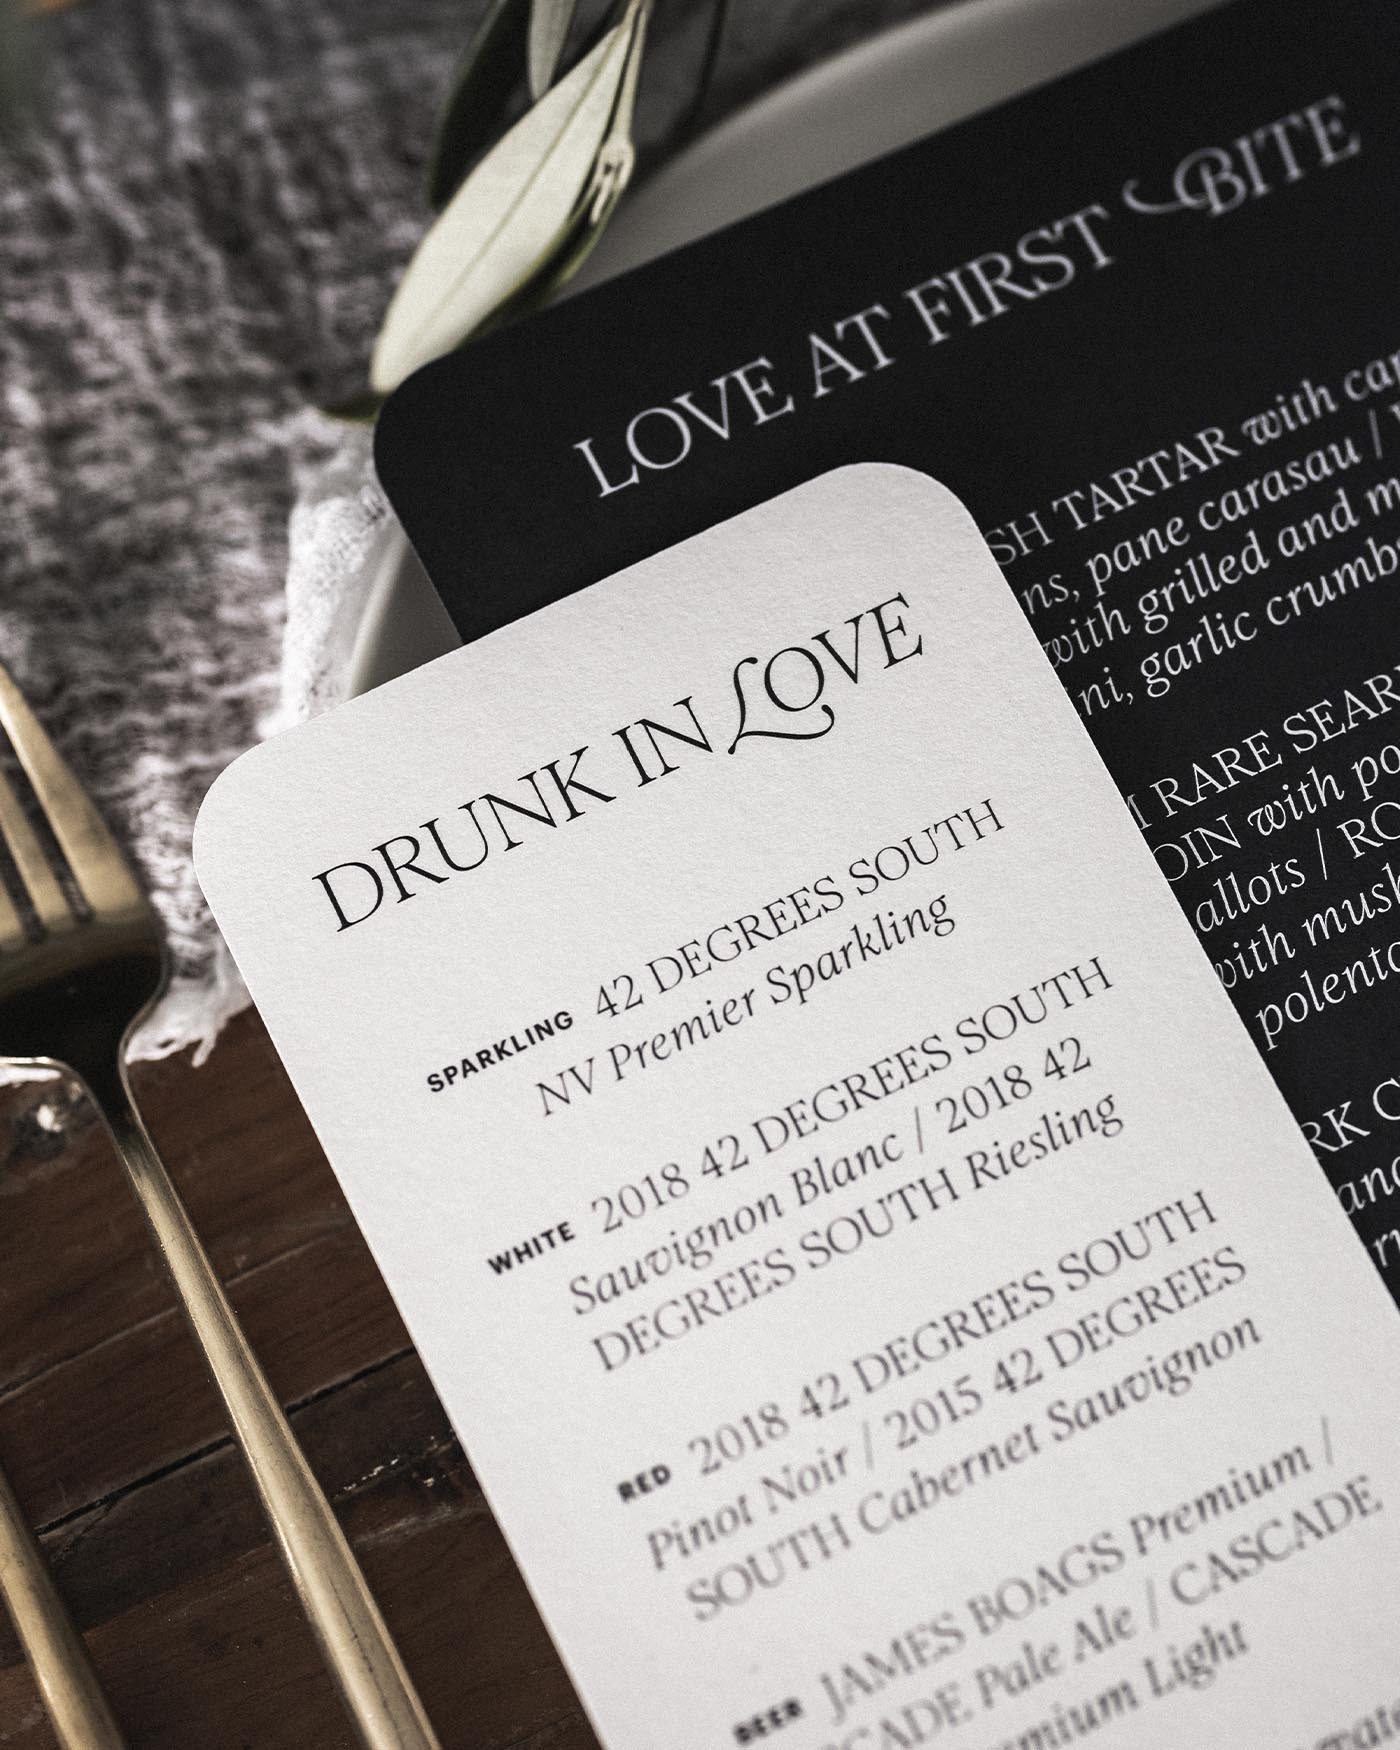 LOVE AT FIRST BITE
SH TARTAR with car
ns, pane carasau /
with grilled and m
ni, garlic crumbs
RARE SEAR
OIN with po
allots / RO
with mush
polent
RK C
and
DRUNK IN LOVE
SPARKLING 42 DEGREES SOUTH
NV Premier Sparkling
WHITE 2018 42 DEGREES SOUTH
Sauvignon Blanc / 2018 42
DEGREES SOUTH Riesling
RED 2018 42 DEGREES SOUTH
Pinot Noir / 2015 42 DEGREES
SOUTH Cabernet Sauvignon
BEER JAMES BOAGS Premium /
CASCADE
CADE Pale Ale / CASCADE
mium Light